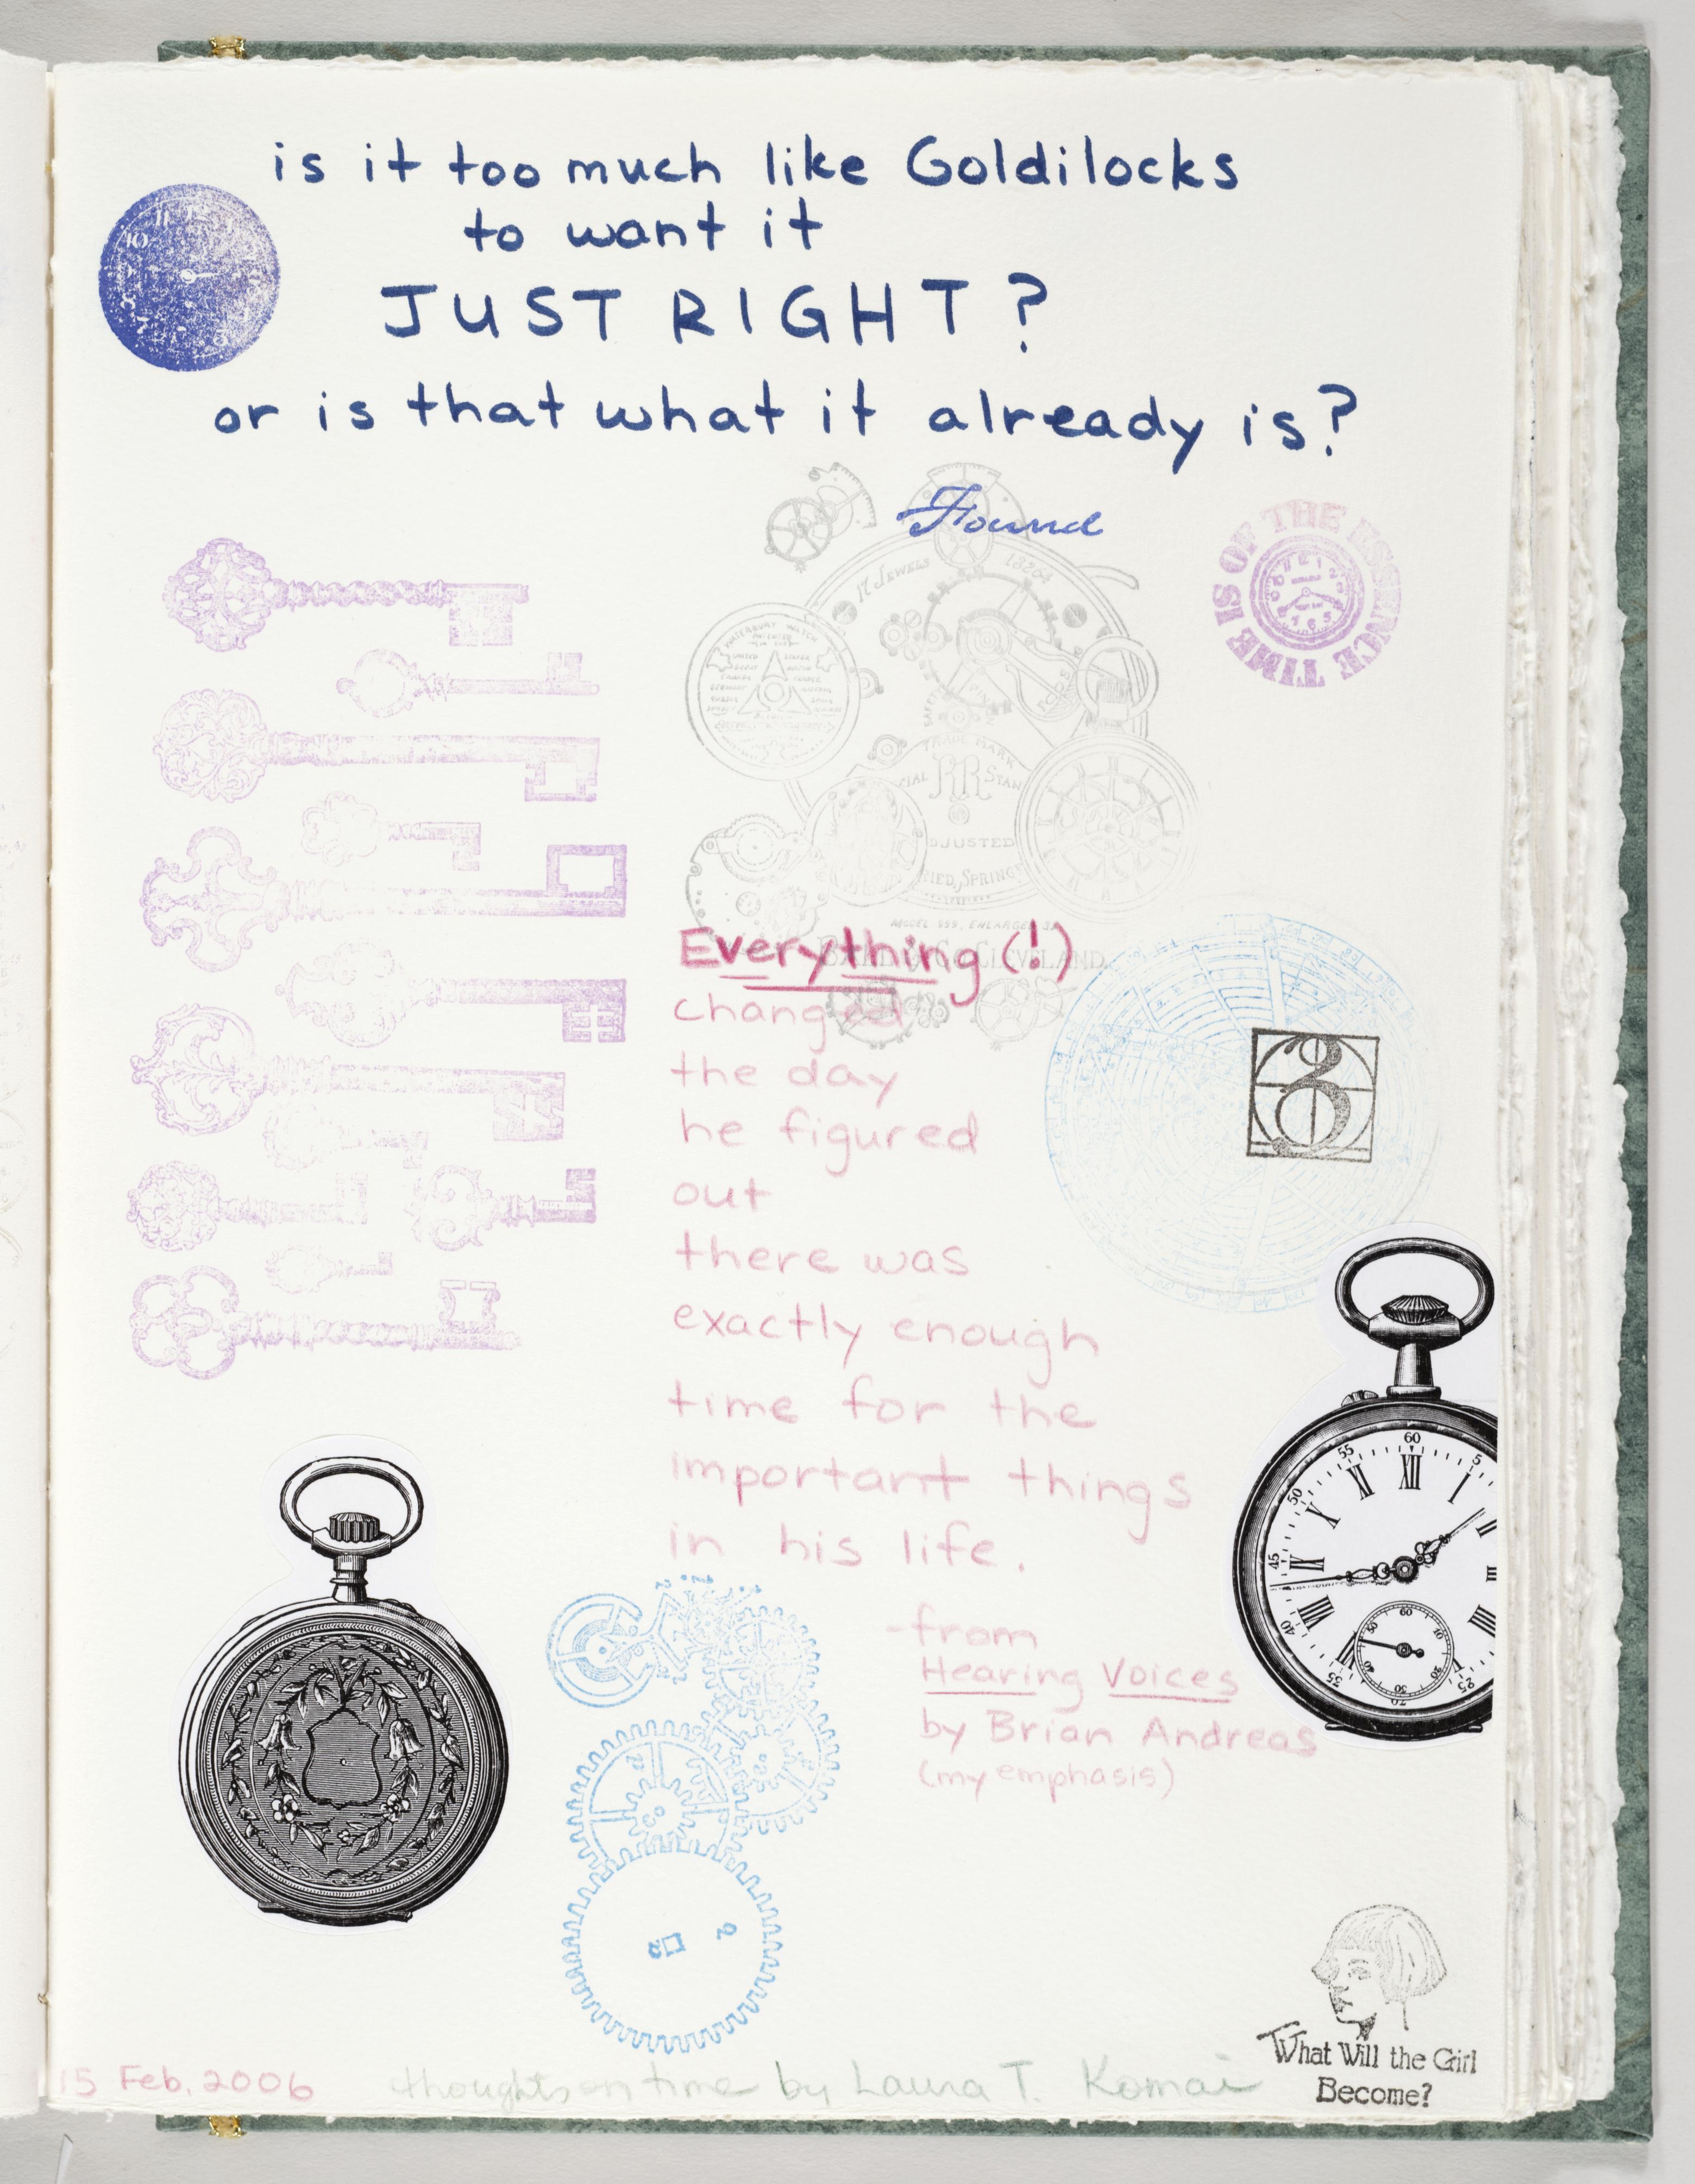 is it too much like Goldilocks
to want it
JUST RIGHT?
or is that what it already is?
Found
TIME IS OF THE ESSENCE
17 JEWELS
WATERBURY WATCH
TRADE MARK
RR
STAN
JUSTED
MODEL 999, ENLARGED
CLEVELAND
Everything (!)
changed
the day
he figured
out
there was
exactly enough
time for the
important things
in his life.
3
-from
Hearing Voices
by Brian Andreas
(my emphasis)
What Will the Girl
Become?
15 Feb. 2006 thoughts on time by Laura T. Komai